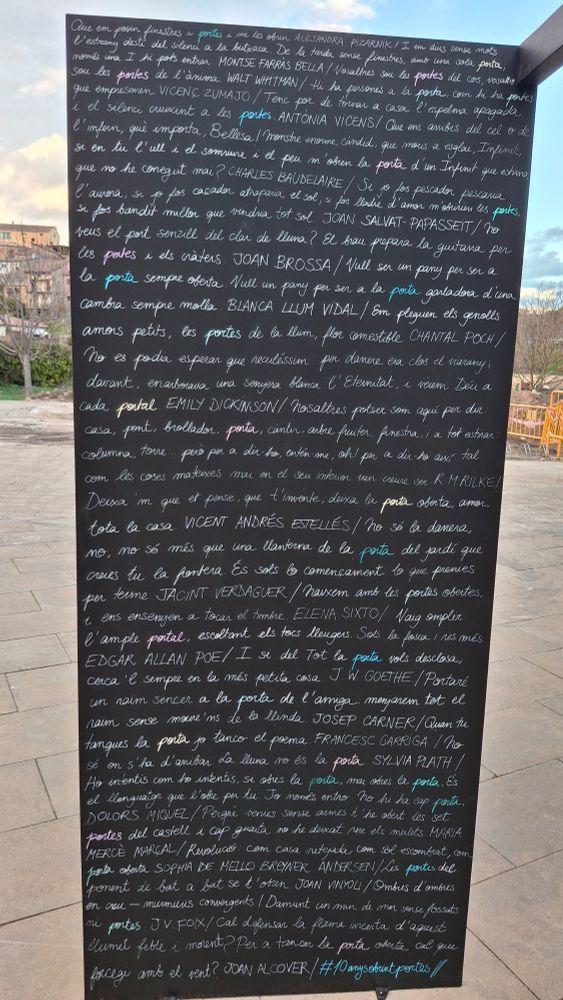 Que em posin finestres i portes i me les obrin ALEJANDRA PIZARNIK / I un dius sense mots
l'estrany destí del silenci a la butxaca. De la tarda sense finestres, amb una sola porta,
només una I hi pots entrar. MONTSE FARRÀS BELLA / Vosaltres sou les portes del cos, vosaltres
sou les portes de l'ànima. WALT WHITMAN / Hi ha persones a la porta com hi ha portes
que empresonen VICENÇ ZUMAJO / Tenc por de tornar a casa: l'espelma apagada
i el silenci cruixint a les portes. ANTÒNIA VICENS / Que ens arribis del cel o de
l'infern, què importa, Bellesa! Monstre enorme, càndid, que mous a esglai, Infinit,
si en tu l'ull i el somriure i el peu m'obren la porta d'un Infinit que estimo
que no he conegut mai? CHARLES BAUDELAIRE / Si jo fos pescador pescaria
l'aurora, si jo fos caçador atraparia el sol, si fos lladre d'amor m'obririen les portes,
si fos bandit millor que vindria tot sol. JOAN SALVAT-PAPASSEIT / No
veus el port senzill del clar de lluna? El brau prepara la guitarra per
les portes i els cràters JOAN BROSSA / Vull ser un pany per ser a
la porta sempre oberta Vull un pany per ser a la porta gantadora d'una
cambra sempre molla. BLANCA LLUM VIDAL / Em pleguen els genolls
amors petits, les portes de la llum, flor comestible CHANTAL POCH /
No es podia esperar que reculéssim: per darrere era clos el viarany;
davant, enarborava una senyera blanca l'Eternitat, i vèiem Déu a
cada portal EMILY DICKINSON / Nosaltres potser som aquí per dir:
casa, pont, brollador, porta, càntir, arbre fruiter, finestra, i a tot estirar:
columna, torre... però per a dir-ho, entén-me, oh! per a dir-ho així, tal
com les coses mateixes mai en el seu interior van creure ser R.M.RILKE /
Deixa'm que et pense, que t'invente, deixa la porta oberta, amor,
tota la casa. VICENT ANDRÉS ESTELLÉS / No só la darrera,
no, no só més que una llanterna de la porta del jardí que
creies tu la fontera. És sols lo començament lo que prenies
per terme JACINT VERDAGUER / Naixem amb les portes obertes,
i ens ensenyen a tocar el timbre. ELENA SIXTO / Vaig omplir
l'ample portal, escoltant els tocs lleugers. Sols la fosca i res més
EDGAR ALLAN POE / I si del Tot la porta vols desclosa,
cerca'l sempre en la més petita cosa. J W GOETHE / Portaré
un raïm sencer a la porta de l'amiga. menjarem tot el
raïm sense moure'ns de la llinda JOSEP CARNER / Quan tu
tanques la porta jo tanco el poema. FRANCESC GARRIGA / No
sé on s'ha d'arribar. La lluna no és la porta SYLVIA PLATH /
Ho intentis com ho intentis, si obres la porta, mai obres la porta. És
el llenguatge que l'obre per tu Jo només entro. No hi ha cap porta.
DOLORS MIQUEL / Perquè venies sense armes t'he obert les set
portes del castell i cap guaita no he deixat vora els merlets MARIA
MERCÈ MARÇAL / Revolució: com casa netejada com sòl escombrat, com
porta oberta SOPHIA DE MELLO BREYNER ANDERSEN / Les portes del
ponent de bat a bat se l'obren. JOAN VINYOLI / Ombres d'ombres
en creu — murmuris convergents / Damunt un mur de mar sense fossats
ni portes J.V. FOIX / Cal defensar la flama incerta d'aquest
llumet feble i morent? Per a tancar la porta oberta, cal que
forcegi amb el vent? JOAN ALCOVER / #10anysobrintportes //